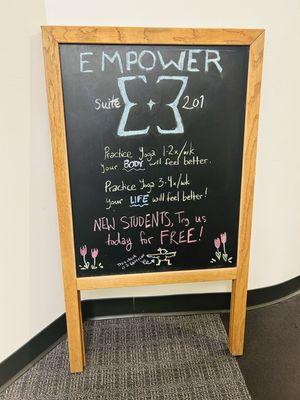 EMPOWER
Suite 201
Practice Yoga 1-2x/wk
Your BODY will feel better.
Practice Yoga 3-4x/wk
your LIFE will feel better!
NEW STUDENTS, Try us
today for FREE!